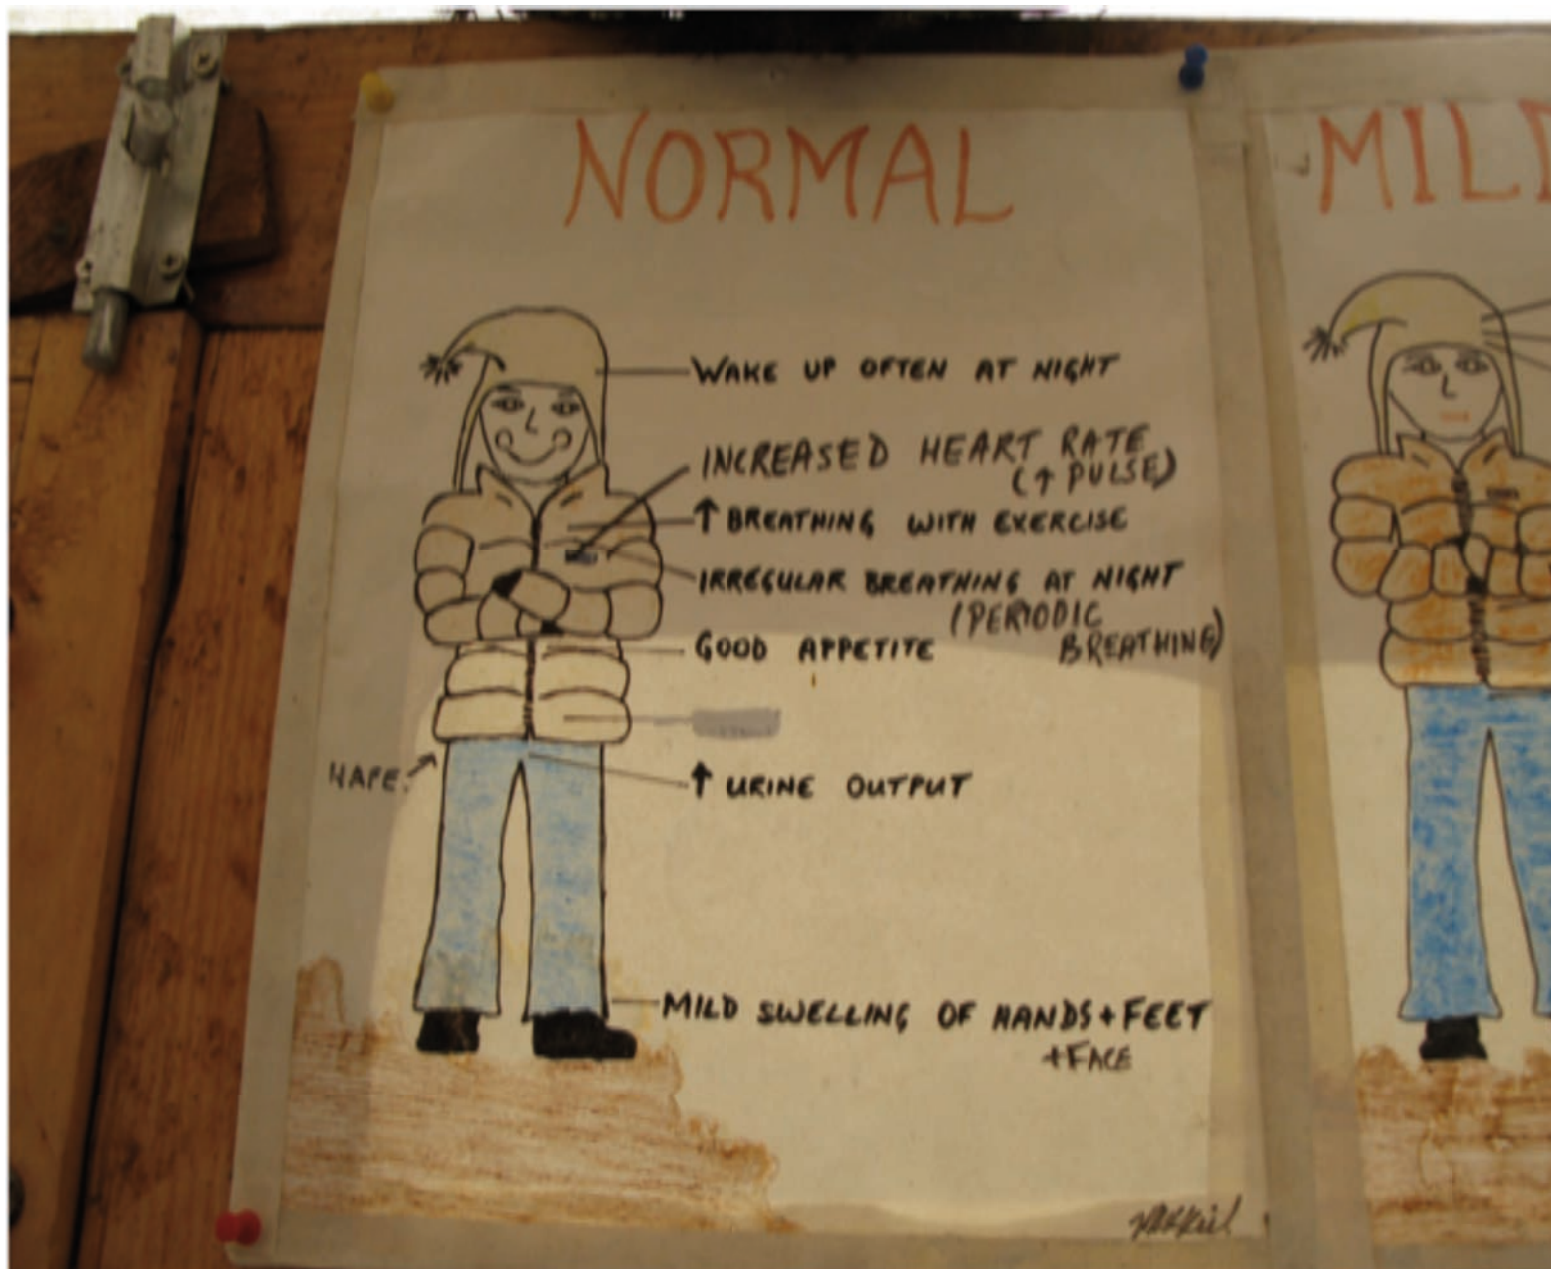 NORMAL
WAKE UP OFTEN AT NIGHT
INCREASED HEART RATE
(↑ PULSE)
↑ BREATHING WITH EXERCISE
IRREGULAR BREATHING AT NIGHT
(PERIODIC
BREATHING)
GOOD APPETITE
HAPE
↑ URINE OUTPUT
MILD SWELLING OF HANDS + FEET
+ FACE
MILD